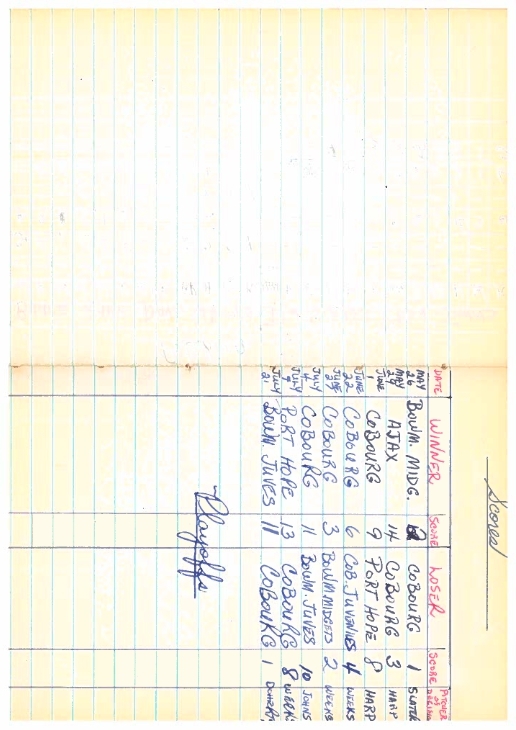 Scores
DATE WINNER SCORE LOSER SCORE PITCHER OF DECISION
MAY 26 BOWM. MIDG. COBOURG 1 SLATER
MAY 29 AJAX 14 COBOURG 3 HARP
JUNE 1 COBOURG 9 PORT HOPE 8 HARP
JUNE 22 COBOURG 6 COB. JUVENILES 4 WEEKS
JUNE 27 COBOURG 3 BOWM MIDGETS 2 WEEKS
JULY 4 COBOURG 11 BOWM. JUVES 10 JOHNS
JULY PORT HOPE 13 COBOURG 8 WEEKS
JULY 21 BOWM. JUVES 11 COBOURG 1
Playoffs